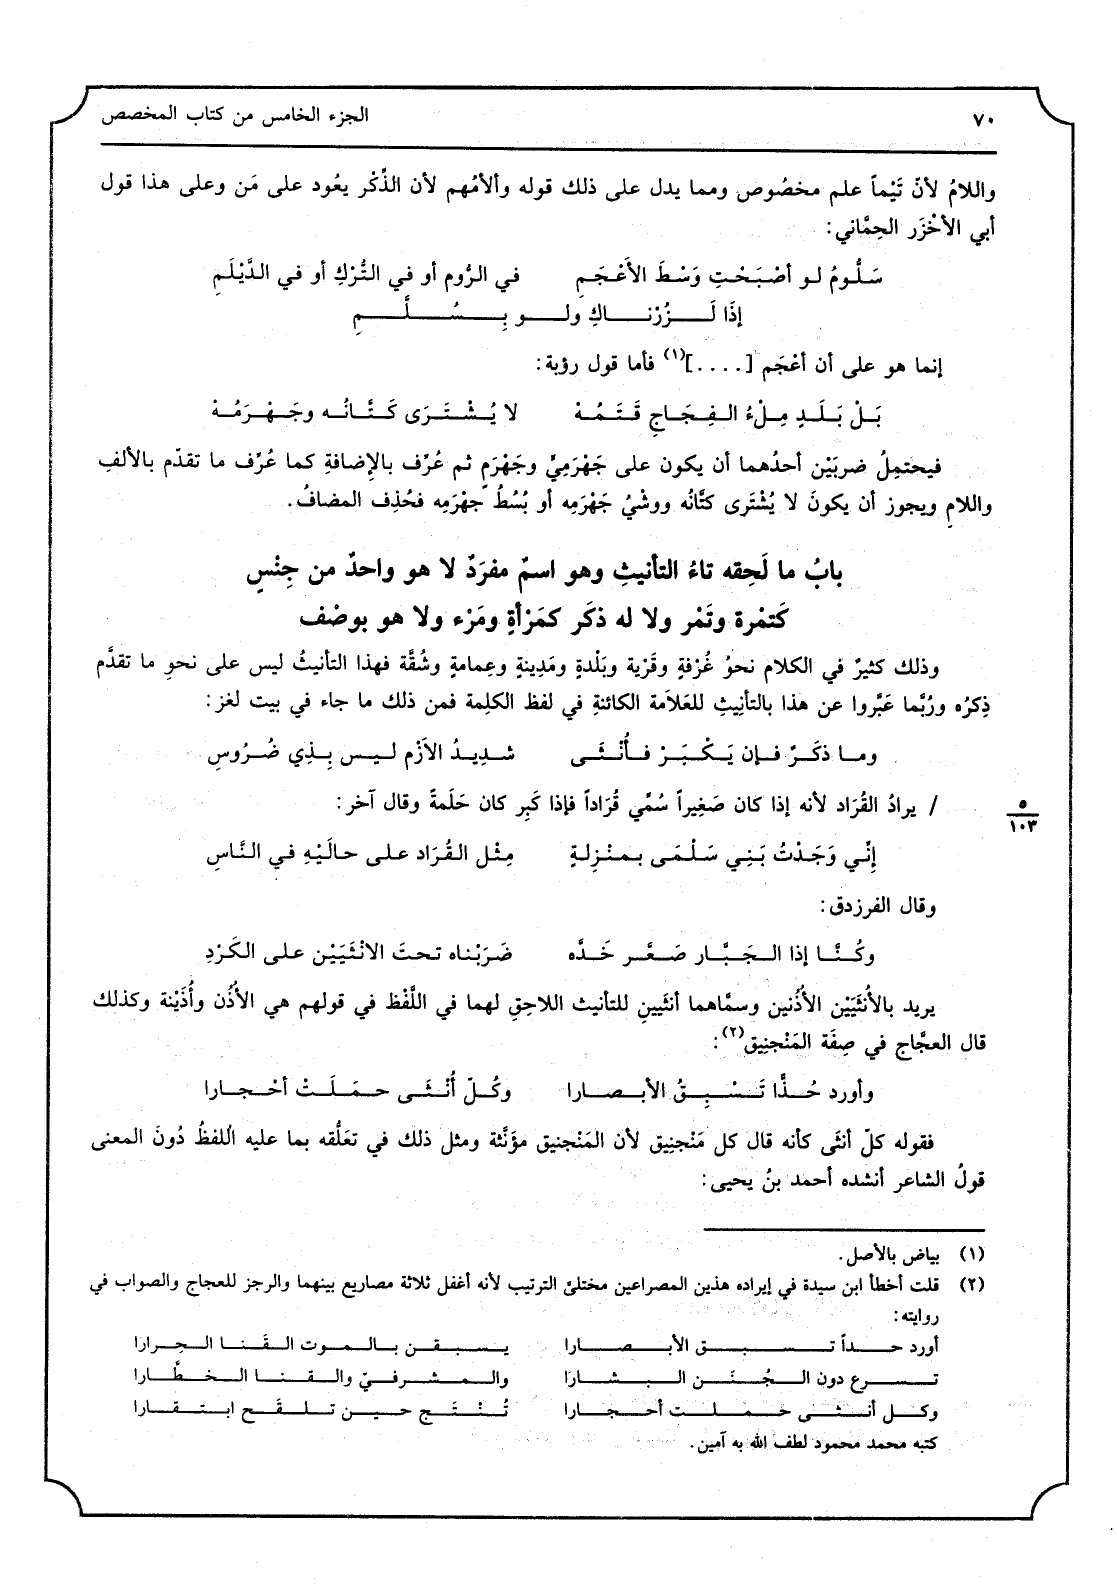 ٧٠ الجزء الخامس من كتاب المخصص
واللامُ لأنّ تَيْماً علم مخصُوص ومما يدل على ذلك قوله وألامُهم لأن الذِّكْر يعُود على مَن وعلى هذا قول
أبي الأخْزَر الحِمَّاني:
سَلُّومُ لو أصْبَحْتِ وَسْطَ الأَعْجَمِ في الرُّوم أو في التُّرْكِ أو في الدَّيْلَمِ
إذَا لَزُرْنَاكِ ولو بِسُلَّمِ
إنما هو على أن أعْجَم [....](١) فأما قول رؤبة:
بَلْ بَلَدٍ مِلْءُ الفِجَاجِ قَتَمُهْ لا يُشْتَرَى كَتَّانُه وجَهْرَمُهْ
فيحتمِلُ ضربَيْن أحدُهما أن يكون على جَهْرَمِيٍّ وجَهْرَمٍ ثم عُرِّف بالإضافةِ كما عُرِّف ما تقدّم بالألفِ
واللامِ ويجوز أن يكونَ لا يُشْتَرَى كتَّانُه ووشْيُ جَهْرَمِه أو بُسُطُ جهْرَمِه فحُذِف المضافُ.
بابُ ما لَحِقه تاءُ التأنيثِ وهو اسمٌ مفرَدٌ لا هو واحدٌ من جِنْسٍ
كَتمْرة وتَمْر ولا له ذكَر كمَرْأةٍ ومَرْء ولا هو بوصْف
وذلك كثيرٌ في الكلام نحوُ غُرْفةٍ وقَرْية وبَلْدةٍ ومَدِينةٍ وعِمامةٍ وشُقَّة فهذا التأنيثُ ليس على نحوِ ما تقدَّم
ذِكرُه ورُبَّما عَبَّروا عن هذا بالتأنِيثِ للعَلاَمة الكائنةِ في لفظ الكلِمة فمن ذلك ما جاء في بيت لغز:
وما ذكَرٌ فإن يَكْبَرْ فأُنْثَى شدِيدُ الأَزْم ليس بِذِي ضُرُوسِ
/ يرادُ القُرَاد لأنه إذا كان صَغِيراً سُمِّي قُرَاداً فإذا كَبِر كان حَلَمةً وقال آخر:
٥
١٠٣
إنِّي وَجَدْتُ بَنِي سَلْمَى بمنْزِلةٍ مِثْل القُرَاد على حالَيْهِ في النَّاسِ
وقال الفرزدق:
وكُنَّا إذا الجَبَّار صَعَّر خَدَّه ضَرَبْناه تحتَ الانْثَيَيْن على الكَرْدِ
يريد بالأُنْثَيَيْن الأُذْنين وسمَّاهما أنثَيينِ للتأنيث اللاحِقِ لهما في اللَّفْظ في قولهم هي الأُذُن وأُذَيْنة وكذلك
قال العجَّاج في صِفَة المَنْجنِيق(٢):
وأورد حُذًّا تَسْبِقُ الأبصارا وكُلّ أُنْثَى حمَلَتْ أحْجارا
فقوله كلّ أنثَى كأنه قال كل مَنْجنِيق لأن المَنْجنيق مؤنَّثة ومثل ذلك في تعَلُّقه بما عليه اللفظُ دُونَ المعنى
قولُ الشاعر أنشده أحمد بنُ يحيى:
(١) بياض بالأصل.
(٢) قلت أخطأ ابن سيدة في إيراده هذين المصراعين مختلئ الترتيب لأنه أغفل ثلاثة مصاريع بينهما والرجز للعجاج والصواب في
روايته:
أورد حداً تسبق الأبصارا يسبقن بالموت القَنا الحِرارا
تسرع دون الجُنَن البشارَا والمشرفيّ والقنا الخطَّارا
وكل أنثى حملت أحجارا تُنْتَج حين تلقَح ابتقارا
كتبه محمد محمود لطف الله به آمين.